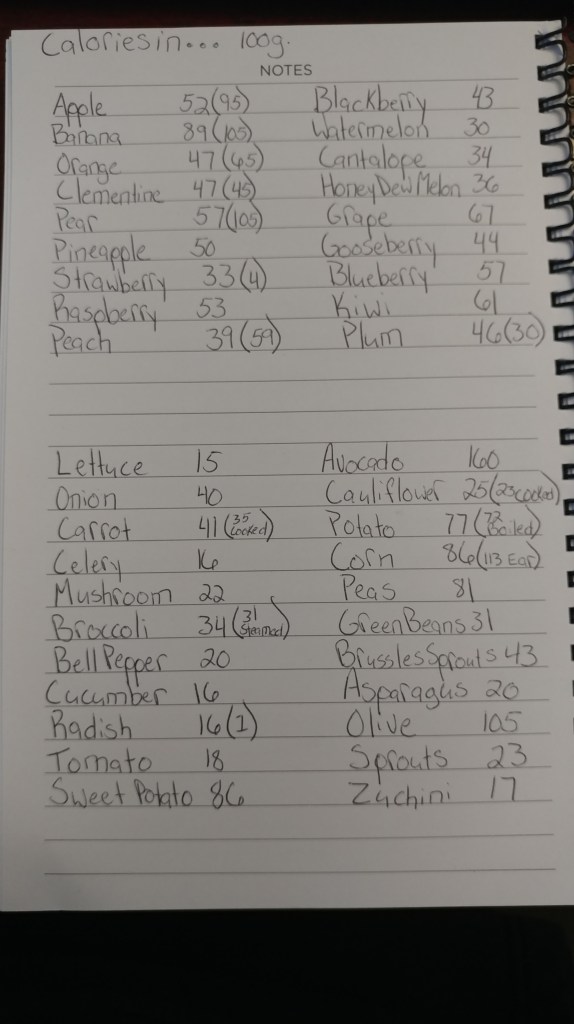 Calories in... 100g.
NOTES
Apple 52(95) Blackberry 43
Banana 89(105) Watermelon 30
Orange 47(65) Cantalope 34
Clementine 47(45) HoneyDew Melon 36
Pear 57(105) Grape 67
Pineapple 50 Gooseberry 44
Strawberry 33(4) Blueberry 57
Raspberry 53 Kiwi 61
Peach 39(59) Plum 46(30)
Lettuce 15 Avocado 160
Onion 40 Cauliflower 25(23 cooked)
Carrot 41(35 Cooked) Potato 77(78 Boiled)
Celery 16 Corn 86(113 Ear)
Mushroom 22 Peas 81
Broccoli 34(31 Steamed) Green Beans 31
Bell Pepper 20 Brussles Sprouts 43
Cucumber 16 Asparagus 20
Radish 16(1) Olive 105
Tomato 18 Sprouts 23
Sweet Potato 86 Zuchini 17